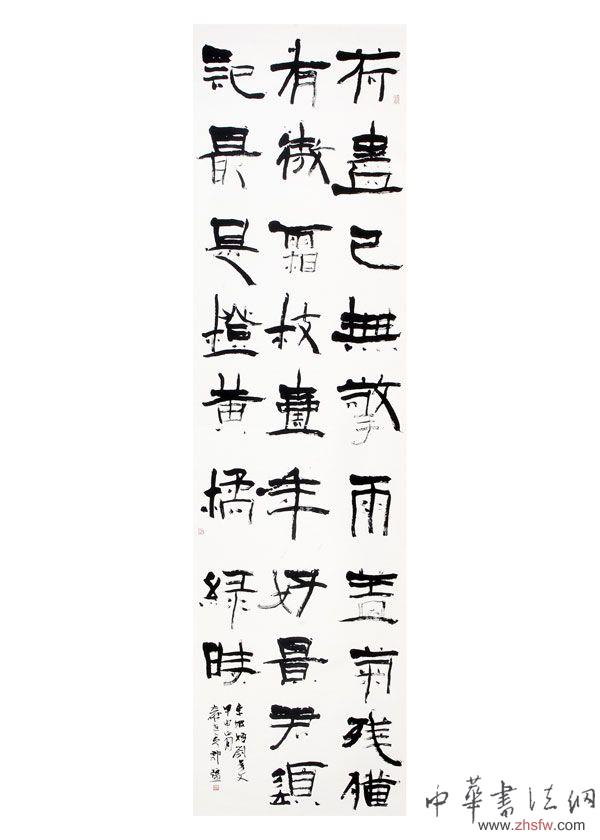 荷盡已無擎雨蓋菊殘猶
有傲霜枝壹年好景君須
記最是橙黃橘綠時
東坡贈劉景文
中華書法網
www.zhsfw.com